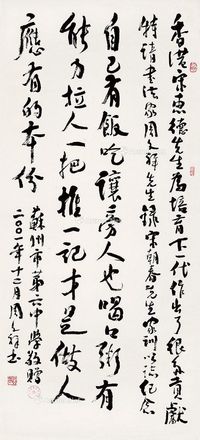 香港宋恵德先生为培育下一代作出了很多贡献
特请书法家周文祥先生录宋朝春先生家训以志纪念
自己有飯吃讓旁人也喝口粥有
能力拉人一把推一記才是做人
應有的本份
蘇州市第六中學敬贈
二〇〇一年十二月周文祥书